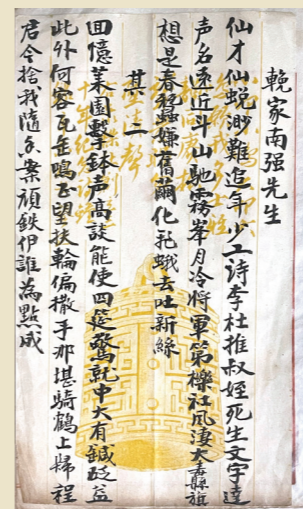 輓家南强先生
仙才仙蛻渺難追年少工詩李杜推叔姪死生文字達
声名遠近斗山馳霧峯月冷將軍第櫟社風淒大纛旗
想是春蠶嫌舊繭化飛蛾去吐新絲
其二
回憶萊園擊鉢声高談能使四筵驚就中大有鍼砭益
此外何容瓦缶鳴正望扶輪偏撒手那堪騎鶴上歸程
君今捨我隨香案頑鉄伊誰為點成